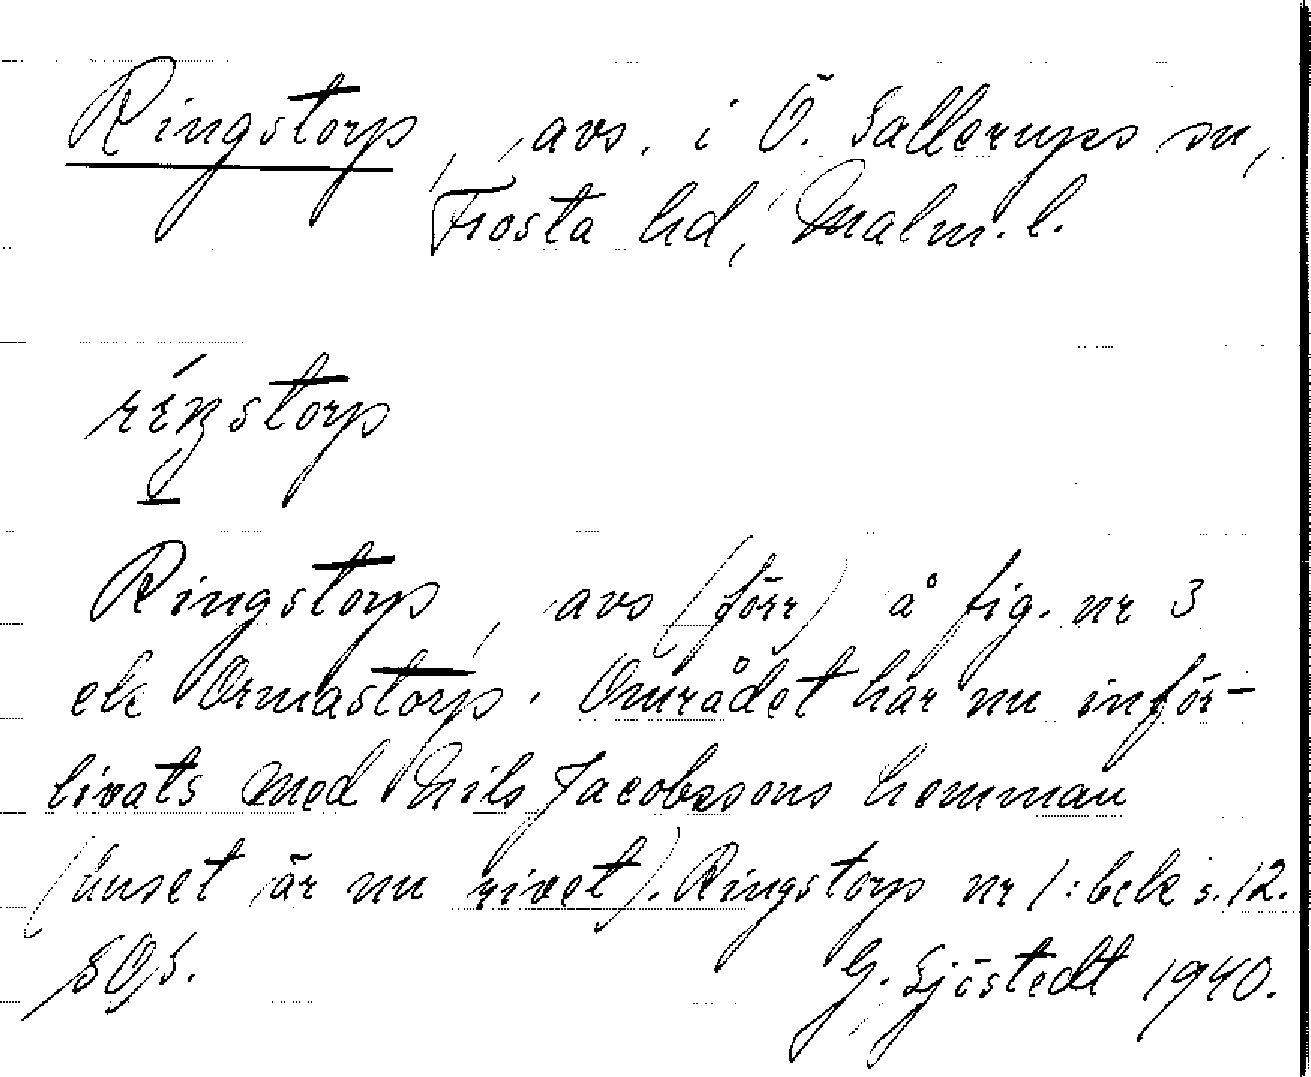 Ringstorp, avs. i Ö. Sallerups sn,
Frosta hd, Malm. l.
réŋstorp
Ringstorp, avs (förr) å fig. nr 3
ek Ormastorp. Området har nu inför-
livats med Nils Jacobssons hemman
(huset är nu rivet). Ringstorp nr 1: bek s. 12.
SOjs. G. Sjöstedt 1940.